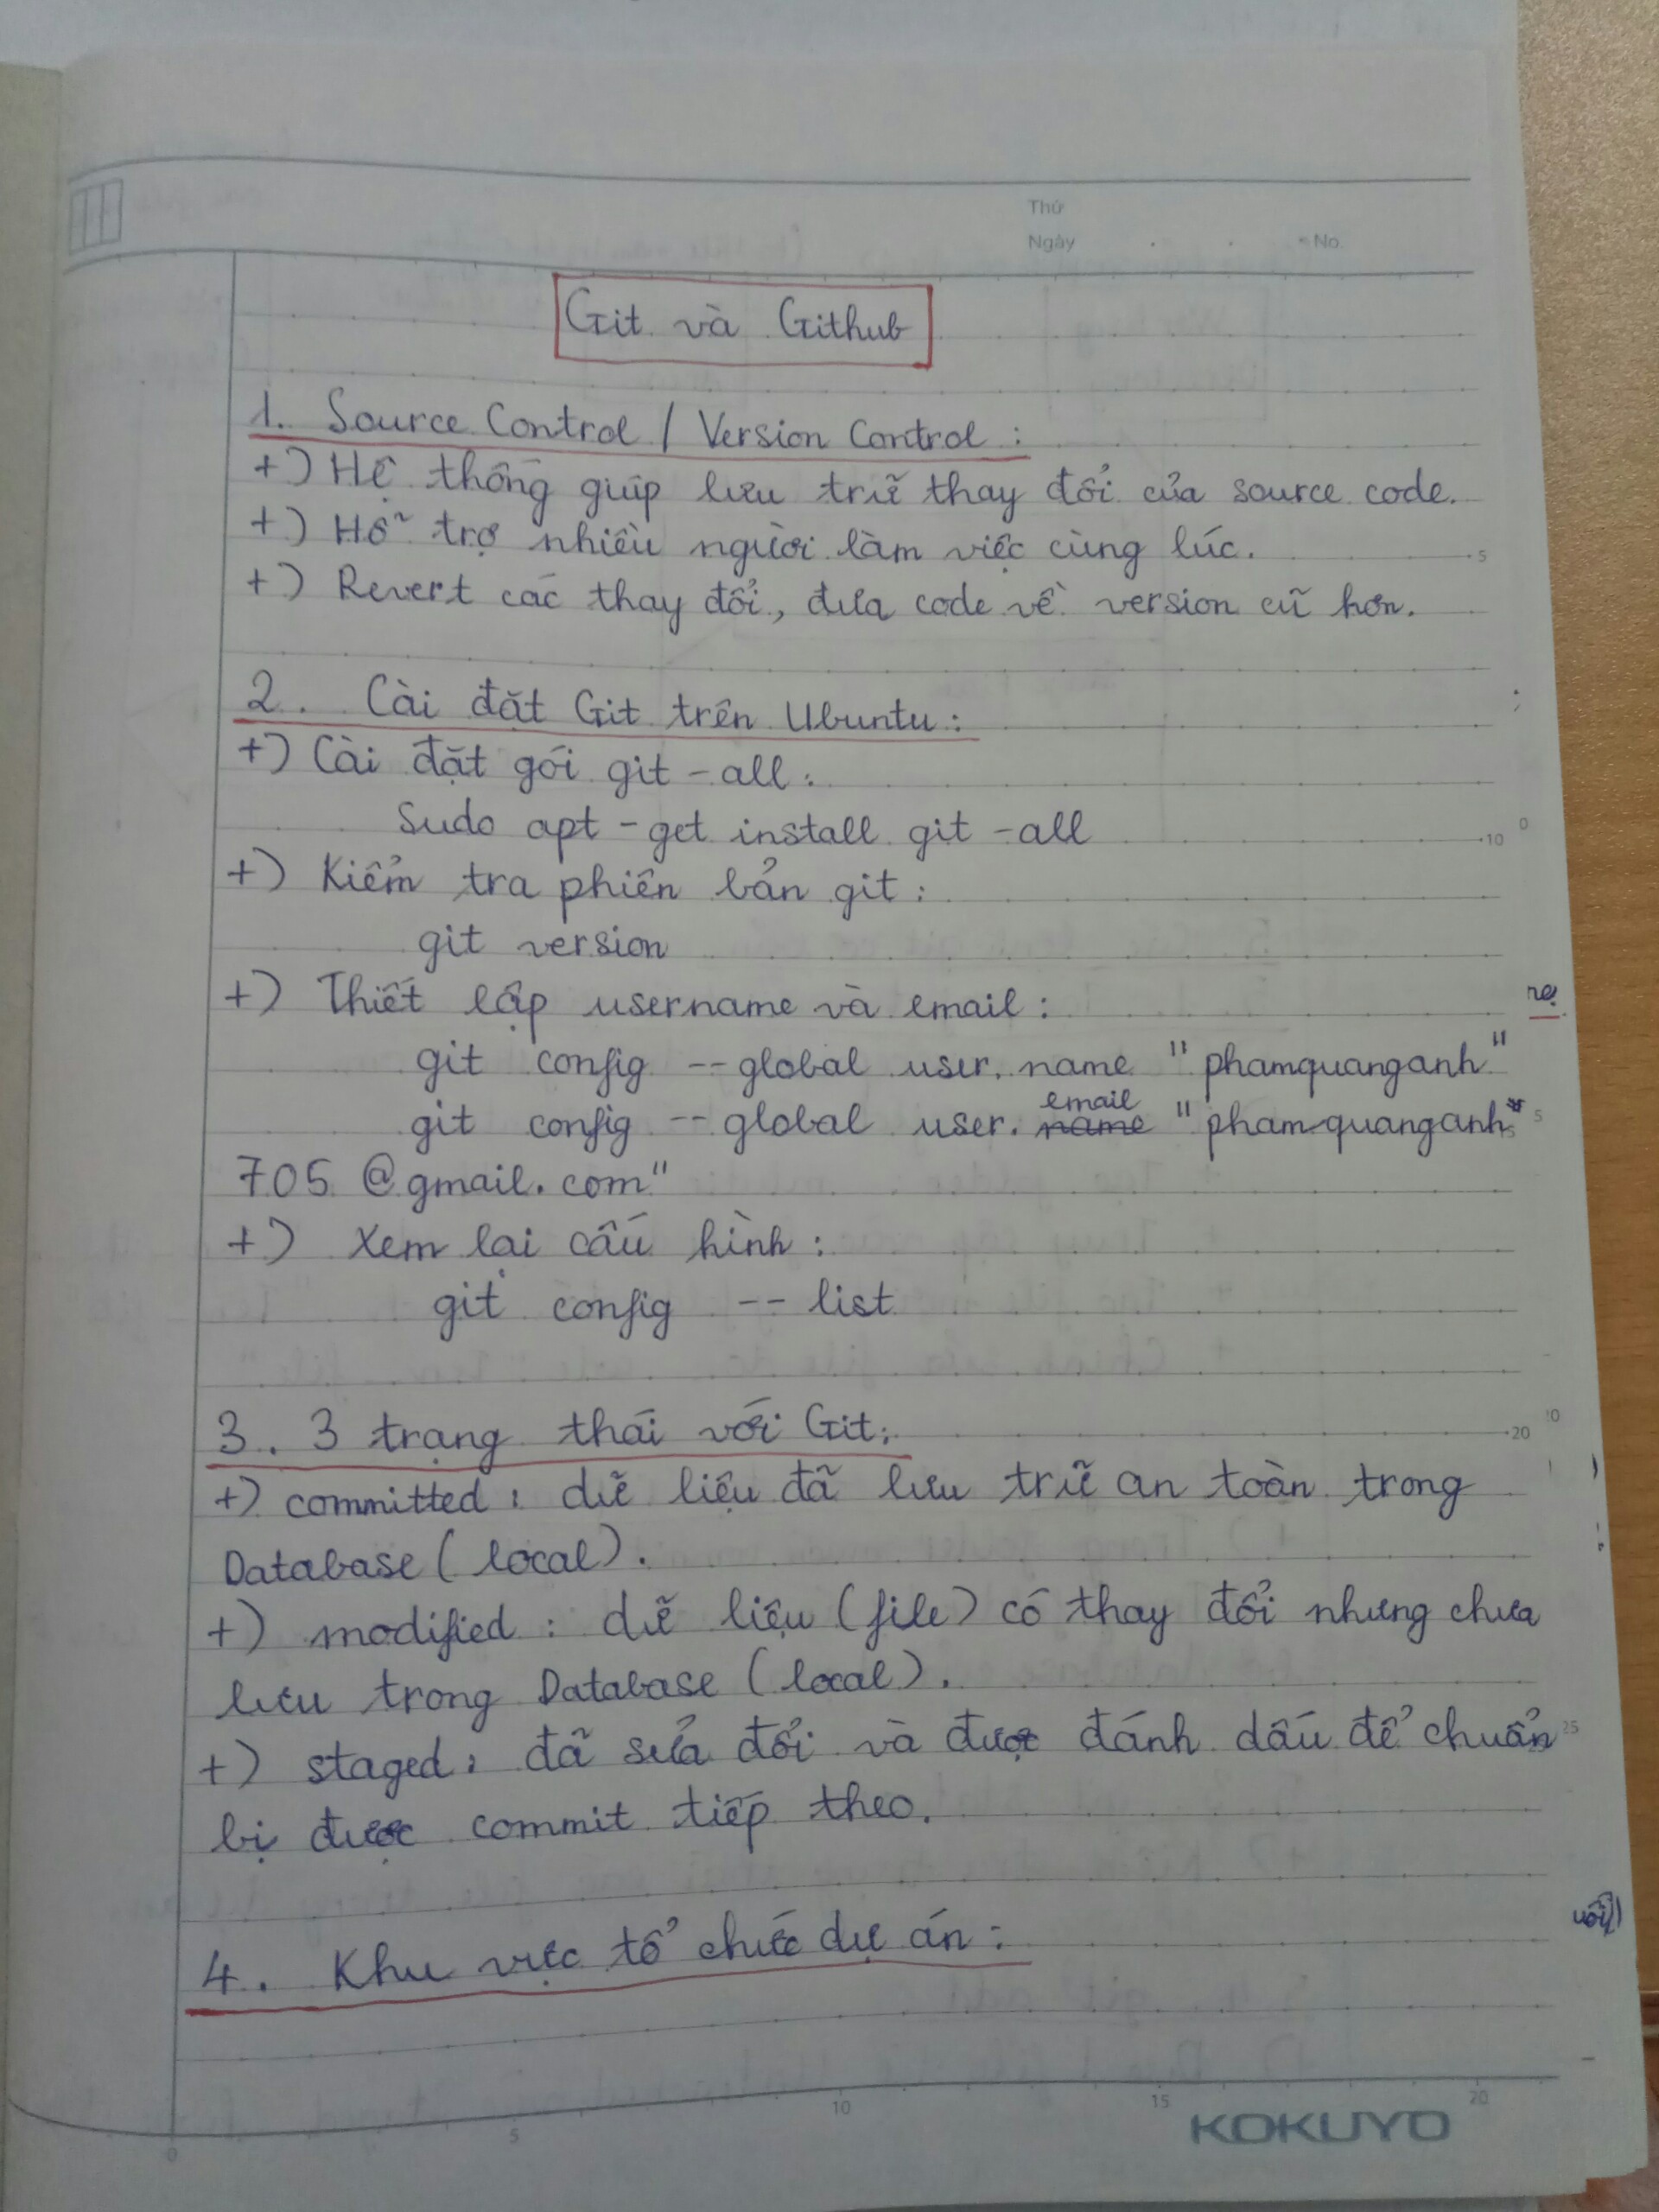 Thứ
Ngày . . . No.
Git và Github
1. Source Control / Version Control :
+) Hệ thống giúp lưu trữ thay đổi của source code.
+) Hỗ trợ nhiều người làm việc cùng lúc.
+) Revert các thay đổi, đưa code về version cũ hơn.
5
2. Cài đặt Git trên Ubuntu :
+) Cài đặt gói git -all :
sudo apt -get install git -all
10
+) Kiểm tra phiên bản git :
git version
+) Thiết lập username và email :
git config --global user. name "phamquanganh"
git config --global user. name email "phamquanganh
705 @gmail.com"
+) Xem lại cấu hình :
git config -- list
3. 3 trạng thái với Git:
20
+) committed : dữ liệu đã lưu trữ an toàn trong
Database ( local ).
+) modified : dữ liệu (file) có thay đổi nhưng chưa
lưu trong Database (local).
+) staged : đã sửa đổi và được đánh dấu để chuẩn
25
bị được commit tiếp theo.
4. Khu vực tổ chức dự án :
0 5 10 15 20
KOKUYO